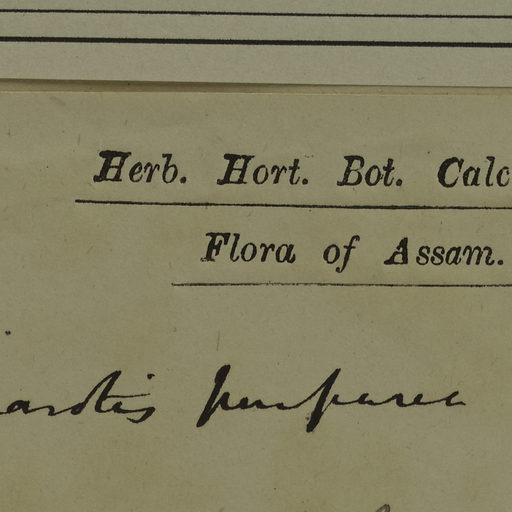 Herb. Hort. Bot. Calc
Flora of Assam.
arotis purpurea